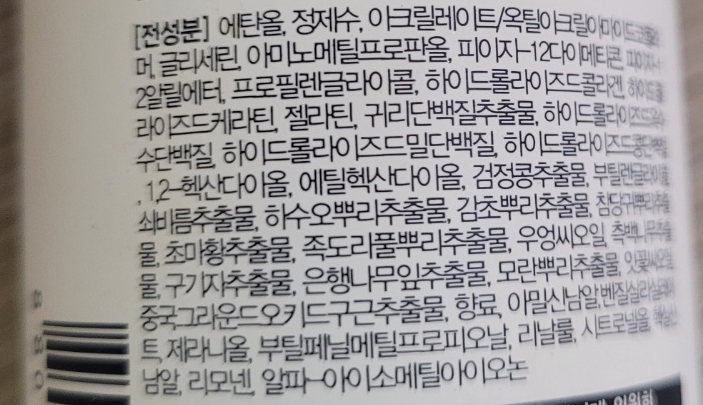 [전성분] 에탄올, 정제수, 아크릴레이트/옥틸아크릴아마이드코폴리
머, 글리세린, 아미노메틸프로판올, 피이지-12다이메티콘, 피피지-1
2알릴에터, 프로필렌글라이콜, 하이드롤라이즈드콜라겐, 하이드롤
라이즈드케라틴, 젤라틴, 귀리단백질추출물, 하이드롤라이즈드옥수
수단백질, 하이드롤라이즈드밀단백질, 하이드롤라이즈드콩단백질
, 1,2-헥산다이올, 에틸헥산다이올, 검정콩추출물, 부틸렌글라이콜,
쇠비름추출물, 하수오뿌리추출물, 감초뿌리추출물, 참당귀뿌리추출
물, 초마황추출물, 족도리풀뿌리추출물, 우엉씨오일, 측백나무추출
물, 구기자추출물, 은행나무잎추출물, 모란뿌리추출물, 잇꽃씨오일,
중국그라운드오키드구근추출물, 향료, 아밀신남알, 벤질살리실레이
트, 제라니올, 부틸페닐메틸프로피오날, 리날룰, 시트로넬올, 헥실신
남알, 리모넨, 알파-아이소메틸아이오논